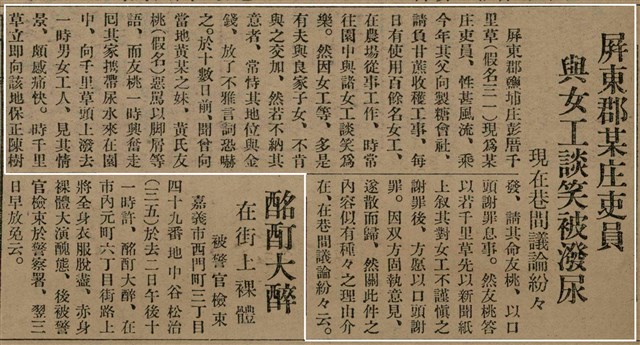 屏東郡某庄吏員
與女工談笑被潑尿
現在巷間議論紛々
屏東郡鹽埔庄彭厝千
里草(假名三一)現爲某
庄吏員、性甚風流、乘
今年其父向製糖會社、
請負甘蔗收穫工事、每
日有使用百餘名女工、
在農場從事工作、時常
往園中與諸女工談笑爲
樂。然因女工等、多是
有夫與良家子女、不肯
與之交加、然若不納其
意者、常恃其地位與金
錢、放了不雅言詞恐嚇
之。於十數日前、聞曾向
當地黃某之妹、黃氏友
桃(假名)惡罵以脚屑等
語、而友桃一時興奮走
回其家携帶尿水來在園
中、向千里草頭上潑去
一時男女工人、見其情
景、頗感痛快。時千里
草立即向該地保正陳樹
發、請其命友桃、以口
頭謝罪息事。然友桃答
以若千里草先以新聞紙
上叙其對女工不謹愼之
謝罪後、方愿以口頭謝
罪。因双方固執意見、
遂散而歸、然關此件之
內容似有種々之理由介
在、在巷間議論紛々云。
酩酊大醉
在街上裸體
被警官檢束
嘉義市西門町三丁目
四十九番地中谷松治
(三五)於去二日午後十
一時許、酩酊大醉、在
市內元町六丁目街路上
將全身衣服脫盡、赤身
裸體大演醜態、後被警
官檢束於警察署、翌三
日早放免云。